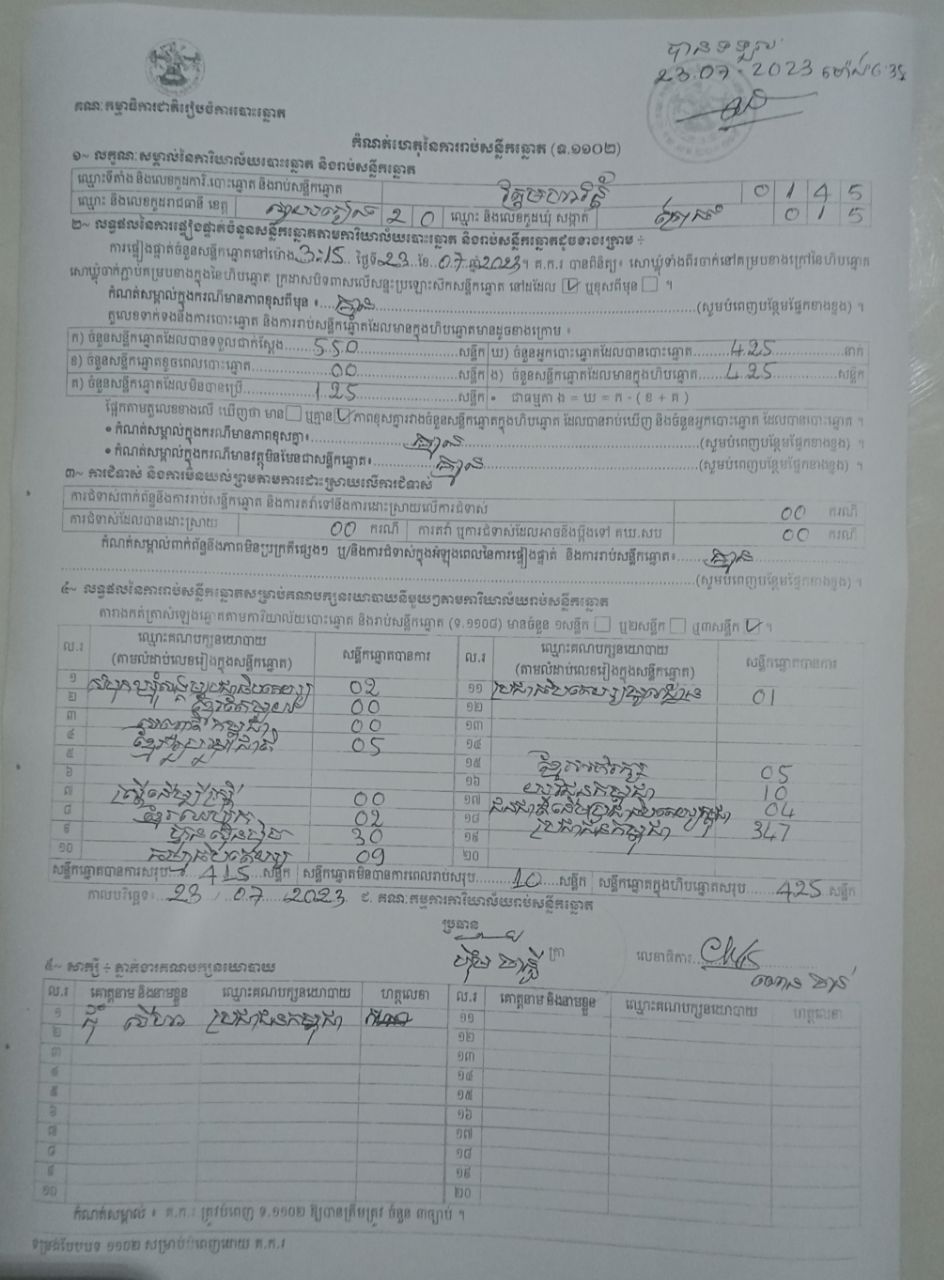 បានទទួល
23.07.2023 ម៉ោង 6:35
គណៈកម្មាធិការជាតិរៀបចំការបោះឆ្នោត
កំណត់ហេតុនៃការរាប់សន្លឹកឆ្នោត (ទ.១១០២)
១~ លក្ខណៈសម្គាល់នៃការិយាល័យបោះឆ្នោត និងរាប់សន្លឹកឆ្នោត
ឈ្មោះទីតាំង និងលេខកូដការិ.បោះឆ្នោត និងរាប់សន្លឹកឆ្នោត 0 1 4 5
ឈ្មោះ និងលេខកូដរាជធានី ខេត្ត ស្វាយរៀង 2 0 ឈ្មោះ និងលេខកូដឃុំ សង្កាត់ 0 1 5
២~ លទ្ធផលនៃការផ្ទៀងផ្ទាត់ចំនួនសន្លឹកឆ្នោតតាមការិយាល័យបោះឆ្នោត និងរាប់សន្លឹកឆ្នោតដូចខាងក្រោម ÷
ការផ្ទៀងផ្ទាត់ចំនួនសន្លឹកឆ្នោតនៅម៉ោង 3:15 ថ្ងៃទី 23 ខែ 07 ឆ្នាំ 2023។ គ.ក.រ បានពិនិត្យ៖ សោឃ្លុំទាំងពីរចាក់នៅគម្របខាងក្រៅនៃហិបឆ្នោត
សោឃ្លុំចាក់ភ្ជាប់គម្របខាងក្នុងនៃហិបឆ្នោត ក្រដាសបិទពាសលើសន្ទះប្រឡោះសឹកសន្លឹកឆ្នោត នៅដដែល ☑ ឬខុសពីមុន ☐ ។
កំណត់សម្គាល់ក្នុងករណីមានភាពខុសពីមុន ៖ គ្មាន (សូមបំពេញបន្ថែមផ្នែកខាងខ្នង) ។
តួលេខទាក់ទងនឹងការបោះឆ្នោត និងការរាប់សន្លឹកឆ្នោតដែលមានក្នុងហិបឆ្នោតមានដូចខាងក្រោម ៖
ក) ចំនួនសន្លឹកឆ្នោតដែលបានទទួលជាក់ស្តែង 550 សន្លឹក ឃ) ចំនួនអ្នកបោះឆ្នោតដែលបានបោះឆ្នោត 425 នាក់
ខ) ចំនួនសន្លឹកឆ្នោតខូចពេលបោះឆ្នោត 00 សន្លឹក ង) ចំនួនសន្លឹកឆ្នោតដែលមានក្នុងហិបឆ្នោត 425 សន្លឹក
គ) ចំនួនសន្លឹកឆ្នោតដែលមិនបានប្រើ 125 សន្លឹក • ជាធម្មតា ង = ឃ = ក - ( ខ + គ )
ផ្អែកតាមតួលេខខាងលើ ឃើញថា មាន ☐ ឬគ្មាន ☑ ភាពខុសគ្នារវាងចំនួនសន្លឹកឆ្នោតក្នុងហិបឆ្នោត ដែលបានរាប់ឃើញ និងចំនួនអ្នកបោះឆ្នោត ដែលបានបោះឆ្នោត ។
• កំណត់សម្គាល់ក្នុងករណីមានភាពខុសគ្នា៖ គ្មាន (សូមបំពេញបន្ថែមផ្នែកខាងខ្នង) ។
• កំណត់សម្គាល់ក្នុងករណីមានវត្ថុមិនមែនជាសន្លឹកឆ្នោត៖ គ្មាន (សូមបំពេញបន្ថែមផ្នែកខាងខ្នង) ។
៣~ ការជំទាស់ និងការមិនយល់ព្រមតាមការដោះស្រាយលើការជំទាស់
ការជំទាស់ពាក់ព័ន្ធនឹងការរាប់សន្លឹកឆ្នោត និងការតវ៉ាទៅនឹងការដោះស្រាយលើការជំទាស់ 00 ករណី
ការជំទាស់ដែលបានដោះស្រាយ 00 ករណី ការតវ៉ា ឬការជំទាស់ដែលអាចនឹងប្តឹងទៅ គឃ.សប 00 ករណី
កំណត់សម្គាល់ពាក់ព័ន្ធនឹងភាពមិនប្រក្រតីផ្សេងៗ ឬ/និងការជំទាស់ក្នុងអំឡុងពេលនៃការផ្ទៀងផ្ទាត់ និងការរាប់សន្លឹកឆ្នោត៖ គ្មាន
(សូមបំពេញបន្ថែមផ្នែកខាងខ្នង) ។
៤~ លទ្ធផលនៃការរាប់សន្លឹកឆ្នោតសម្រាប់គណបក្សនយោបាយនីមួយៗតាមការិយាល័យរាប់សន្លឹកឆ្នោត
តារាងកត់ត្រាសំឡេងឆ្នោតតាមការិយាល័យបោះឆ្នោត និងរាប់សន្លឹកឆ្នោត (ទ.១១០៨) មានចំនួន ១សន្លឹក ☐ ឬ២សន្លឹក ☐ ឬ៣សន្លឹក ☑ ។
ល.រ ឈ្មោះគណបក្សនយោបាយ (តាមលំដាប់លេខរៀងក្នុងសន្លឹកឆ្នោត) សន្លឹកឆ្នោតបានការ ល.រ ឈ្មោះគណបក្សនយោបាយ (តាមលំដាប់លេខរៀងក្នុងសន្លឹកឆ្នោត) សន្លឹកឆ្នោតបានការ
១ សំបុកឃ្មុំសង្គមប្រជាធិបតេយ្យ 02 ១១ 01
២ ខ្មែរតែមួយ 00 ១២
៣ 00 ១៣
៤ ខ្មែររួបរួមជាតិ 05 ១៤
៥ ១៥ ខ្មែរអភិរក្ស 05
៦ ១៦ យុវជនកម្ពុជា 10
៧ ស្ត្រីដើម្បីស្ត្រី 00 ១៧ 04
៨ 02 ១៨ ប្រជាជនកម្ពុជា 347
៩ ហ្វ៊ុនស៊ិនប៉ិច 30 ១៩
១០ កម្លាំងប្រជាធិបតេយ្យ 09 ២០
សន្លឹកឆ្នោតបានការសរុប 415 សន្លឹក សន្លឹកឆ្នោតមិនបានការពេលរាប់សរុប 10 សន្លឹក សន្លឹកឆ្នោតក្នុងហិបឆ្នោតសរុប 425 សន្លឹក
កាលបរិច្ឆេទ៖ 23 / 07 / 2023 ជ. គណៈកម្មការការិយាល័យរាប់សន្លឹកឆ្នោត
ប្រធាន
លេខាធិការ
៥~ សាក្សី ÷ ភ្នាក់ងារគណបក្សនយោបាយ
ល.រ គោត្តនាម និងនាមខ្លួន ឈ្មោះគណបក្សនយោបាយ ហត្ថលេខា ល.រ គោត្តនាម និងនាមខ្លួន ឈ្មោះគណបក្សនយោបាយ ហត្ថលេខា
១ ប្រជាជនកម្ពុជា ១១
២ ១២
៣ ១៣
៤ ១៤
៥ ១៥
៦ ១៦
៧ ១៧
៨ ១៨
៩ ១៩
១០ ២០
កំណត់សម្គាល់ ៖ គ.ក.រ ត្រូវបំពេញ ទ.១១០២ ឱ្យបានត្រឹមត្រូវ ចំនួន ៣ច្បាប់ ។
ទម្រង់បែបបទ ១១០២ សម្រាប់បំពេញដោយ គ.ក.រ